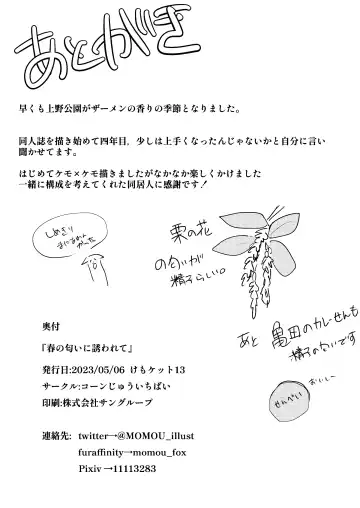 あとがき
早くも上野公園がザーメンの香りの季節となりました。
同人誌を描き始めて四年目，少しは上手くなったんじゃないかと自分に言い
聞かせてます。
はじめてケモ×ケモ描きましたがなかなか楽しくかけました
一緒に構成を考えてくれた同居人に感謝です！
しめきり
まにあわ
栗の花
の匂いが
精子らしい。
あと 亀田のカレーせんも
精子のにおいです
おいしー
せんべい
奥付
『春の匂いに誘われて』
発行日:2023/05/06 けもケット13
サークル:コーンじゅういちばい
印刷:株式会社サングループ
連絡先: twitter→@MOMOU_illust
furaffinity→momou_fox
Pixiv →11113283